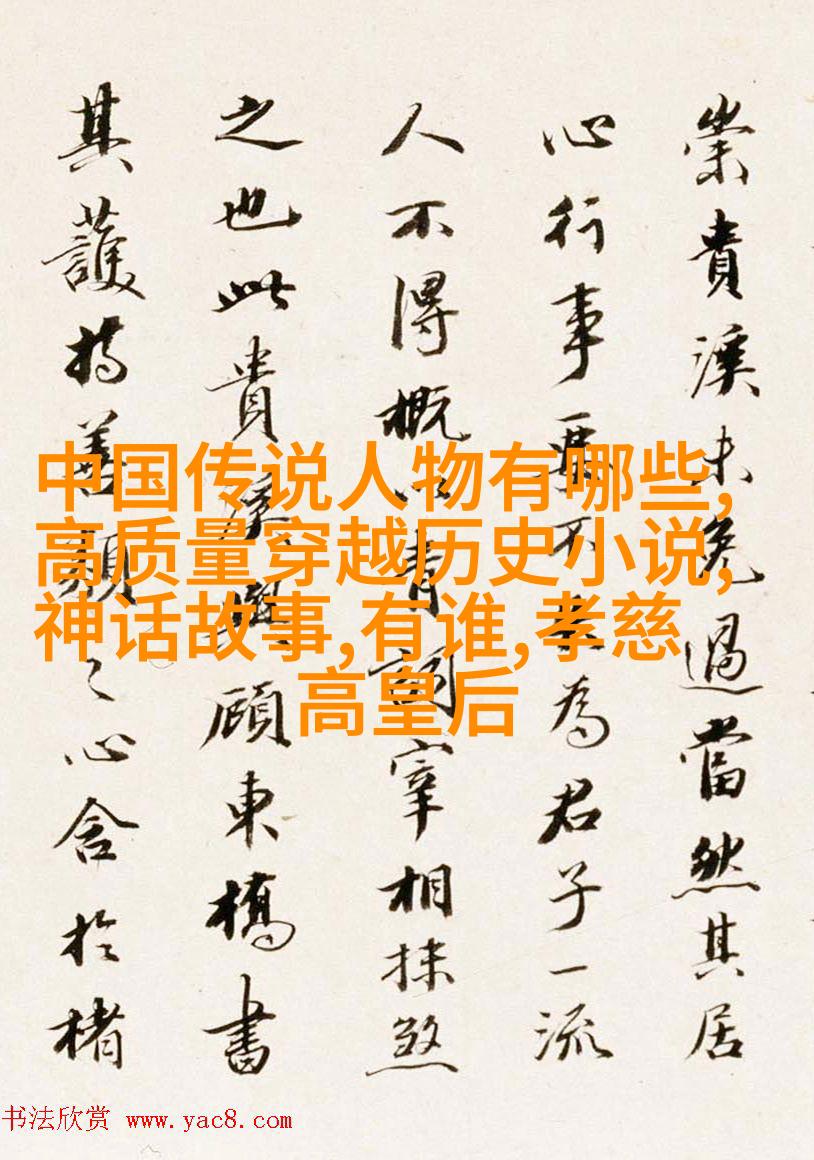 崇貴溪未免過當然其居
心行事要不為君子一流
人不得概以青詞宰相抹煞
之也此貴溪與顧東橋書
其護持善類之心含於楮
中国传说人物有哪些,
高质量穿越历史小说,
神话故事,有谁,孝慈
高皇后
书法欣赏 www.yac8.com